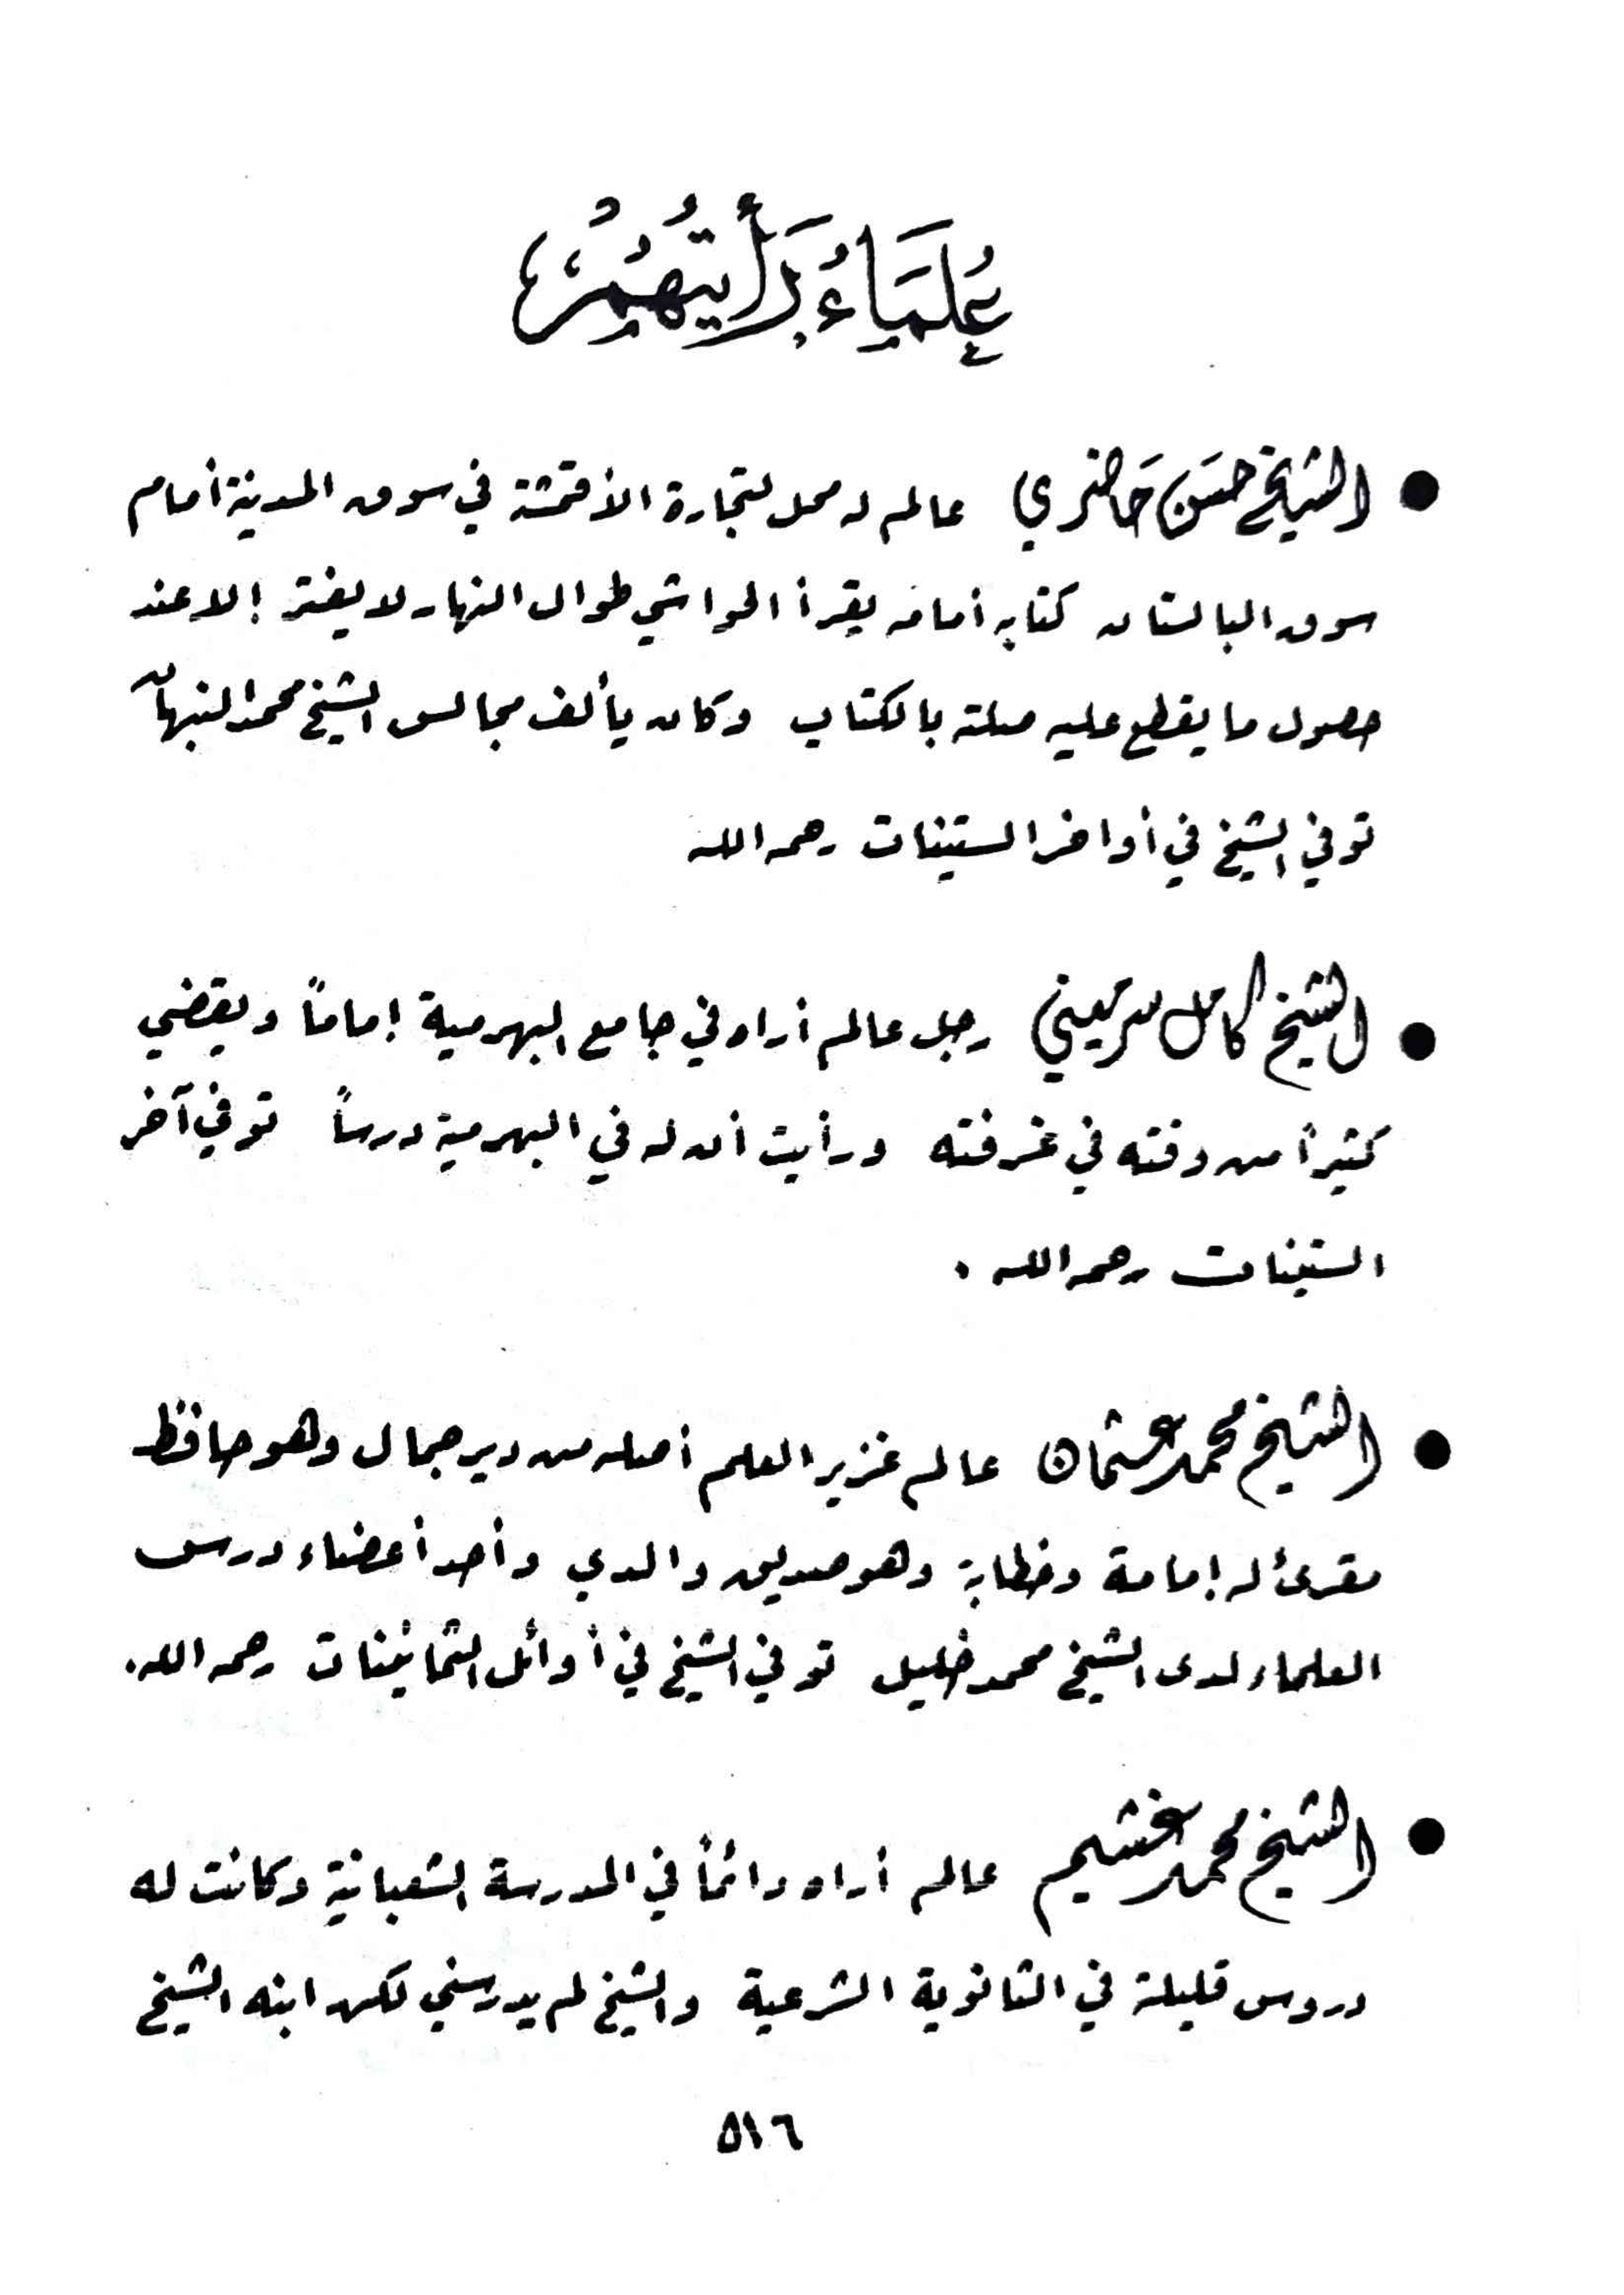 عُلَمَاءُ رَأَيْتُهُمْ
● الشيخ حسن حاضري عالم له محل لتجارة الأقمشة في سوق المدينة أمام
سوق البالستان كتابه أمامه يقرأ الحواشي طوال النهار لا يفتر إلا عند
حصول ما يقطع عليه صلته بالكتاب وكان يألف مجالس الشيخ محمد النبهان
توفي الشيخ في أواخر الستينات رحمه الله
● الشيخ كامل سرميني رجل عالم أراه في جامع البهرمية إماماً ويقضي
كثيراً من وقته في غرفته ورأيت أن له في البهرمية درساً توفي آخر
الستينات رحمه الله .
● الشيخ محمد عثمان عالم غزير العلم أصله من دير جمال وهو حافظ
مقرئ له إمامة وخطابة وهو صديق والدي وأحد أعضاء درس
العلماء لدى الشيخ محمد خليل توفي الشيخ في أوائل الثمانينات رحمه الله.
● الشيخ محمد غشيم عالم أراه دائماً في المدرسة الشعبانية وكانت له
دروس قليلة في الثانوية الشرعية والشيخ لم يدرسني لكن ابنه الشيخ
٥١٦